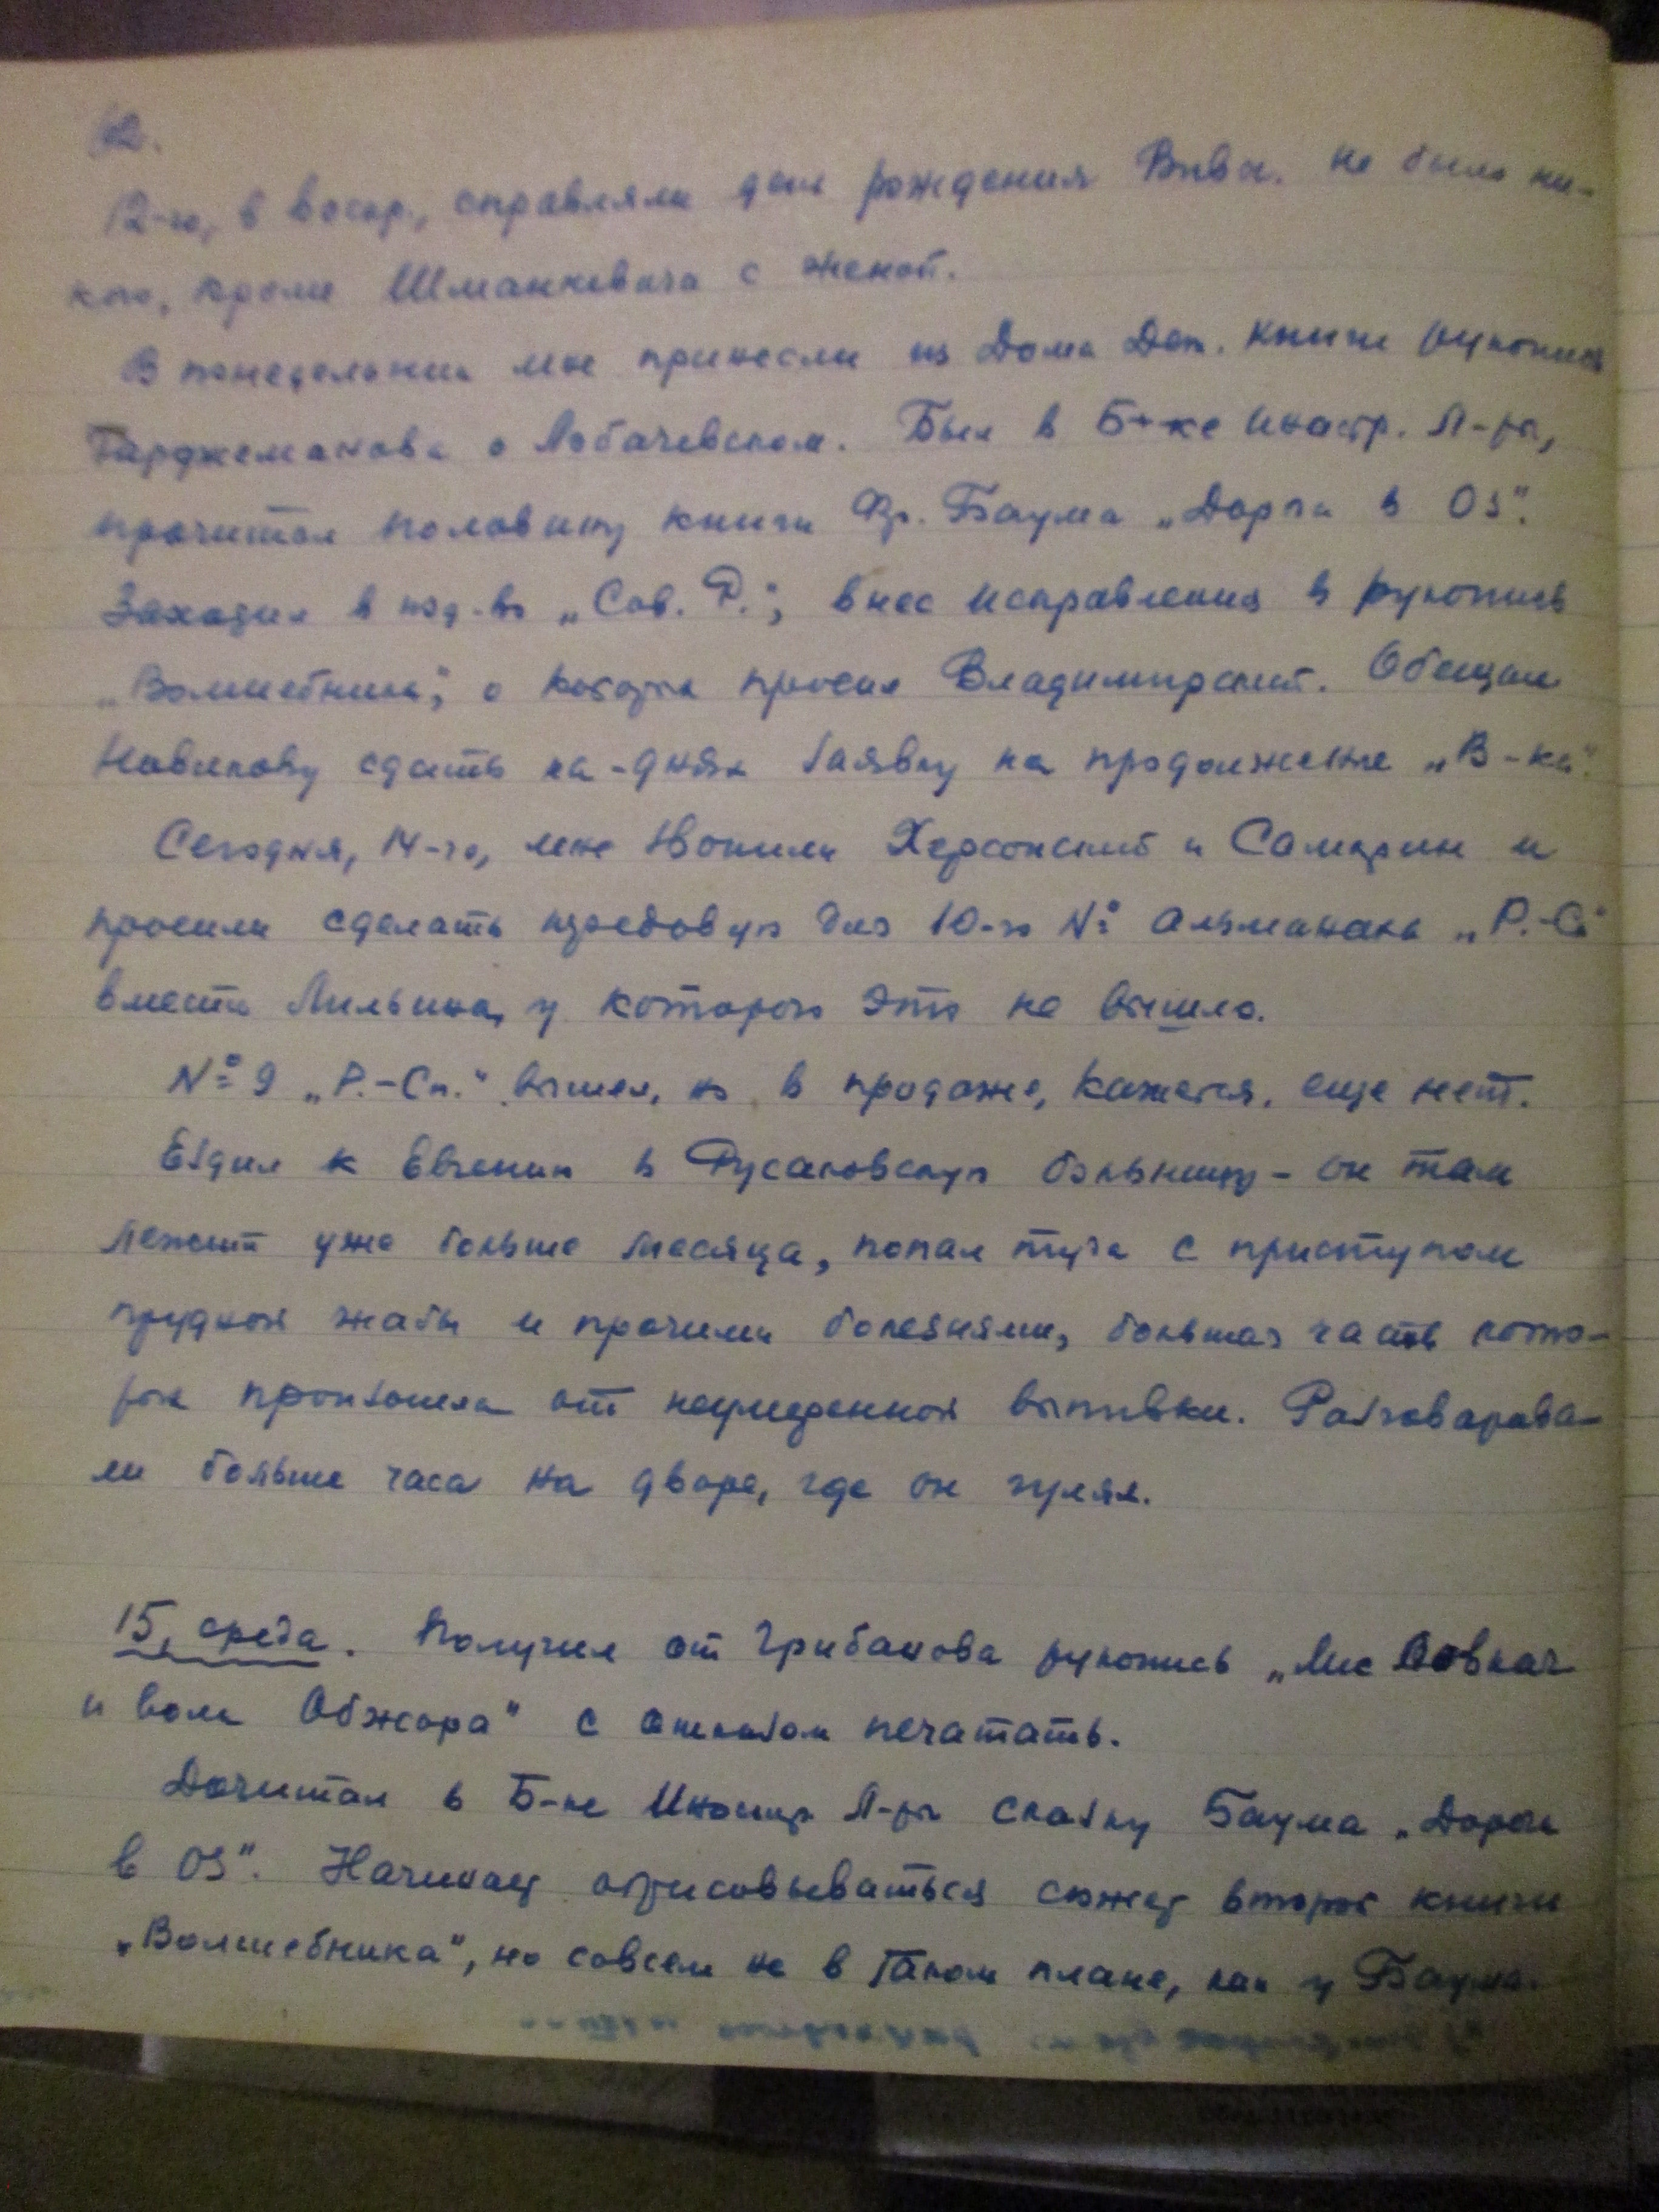 12-го, в воскр., справляли день рождения Вивы. Не было ни-
кого, кроме Шманкевича с женой.
В понедельник мне принесли из Дома Дет. книги рукопись
Тарджеманова о Лобачевском. Был в Б-ке Иностр. Л-ры,
прочитал половину книги Фр. Баума „Дорога в Оз".
Заходил в изд-во „Сов. Р.", внес исправления в рукопись
„Волшебника", о которых просил Владимирский. Обещал
Новикову сдать на-днях заявку на продолжение „В-ка".
Сегодня, 14-го, мне звонили Херсонский и Самарин и
просили сделать кроссворд для 10-го № альманаха „Р.-С."
вместо Мильвина, у которого это не вышло.
№ 9 „Р.-Сп." вышел, но в продаже, кажется, еще нет.
Ездил к Евгению в Русаковскую больницу – он там
лежит уже больше месяца, попал туда с приступом
грудной жабы и прочими болезнями, большая часть кото-
рых произошла от неумеренной выпивки. Разговарива-
ли больше часа на дворе, где он гулял.
15, среда. Получил от Грибанова рукопись „Лис Вовкач
и волк Обжора" с отказом печатать.
Дочитал в Б-ке Иностр Л-ры сказку Баума „Дорога
в Оз". Начинает обрисовываться сюжет второй книги
„Волшебника", но совсем не в таком плане, как у Баума.